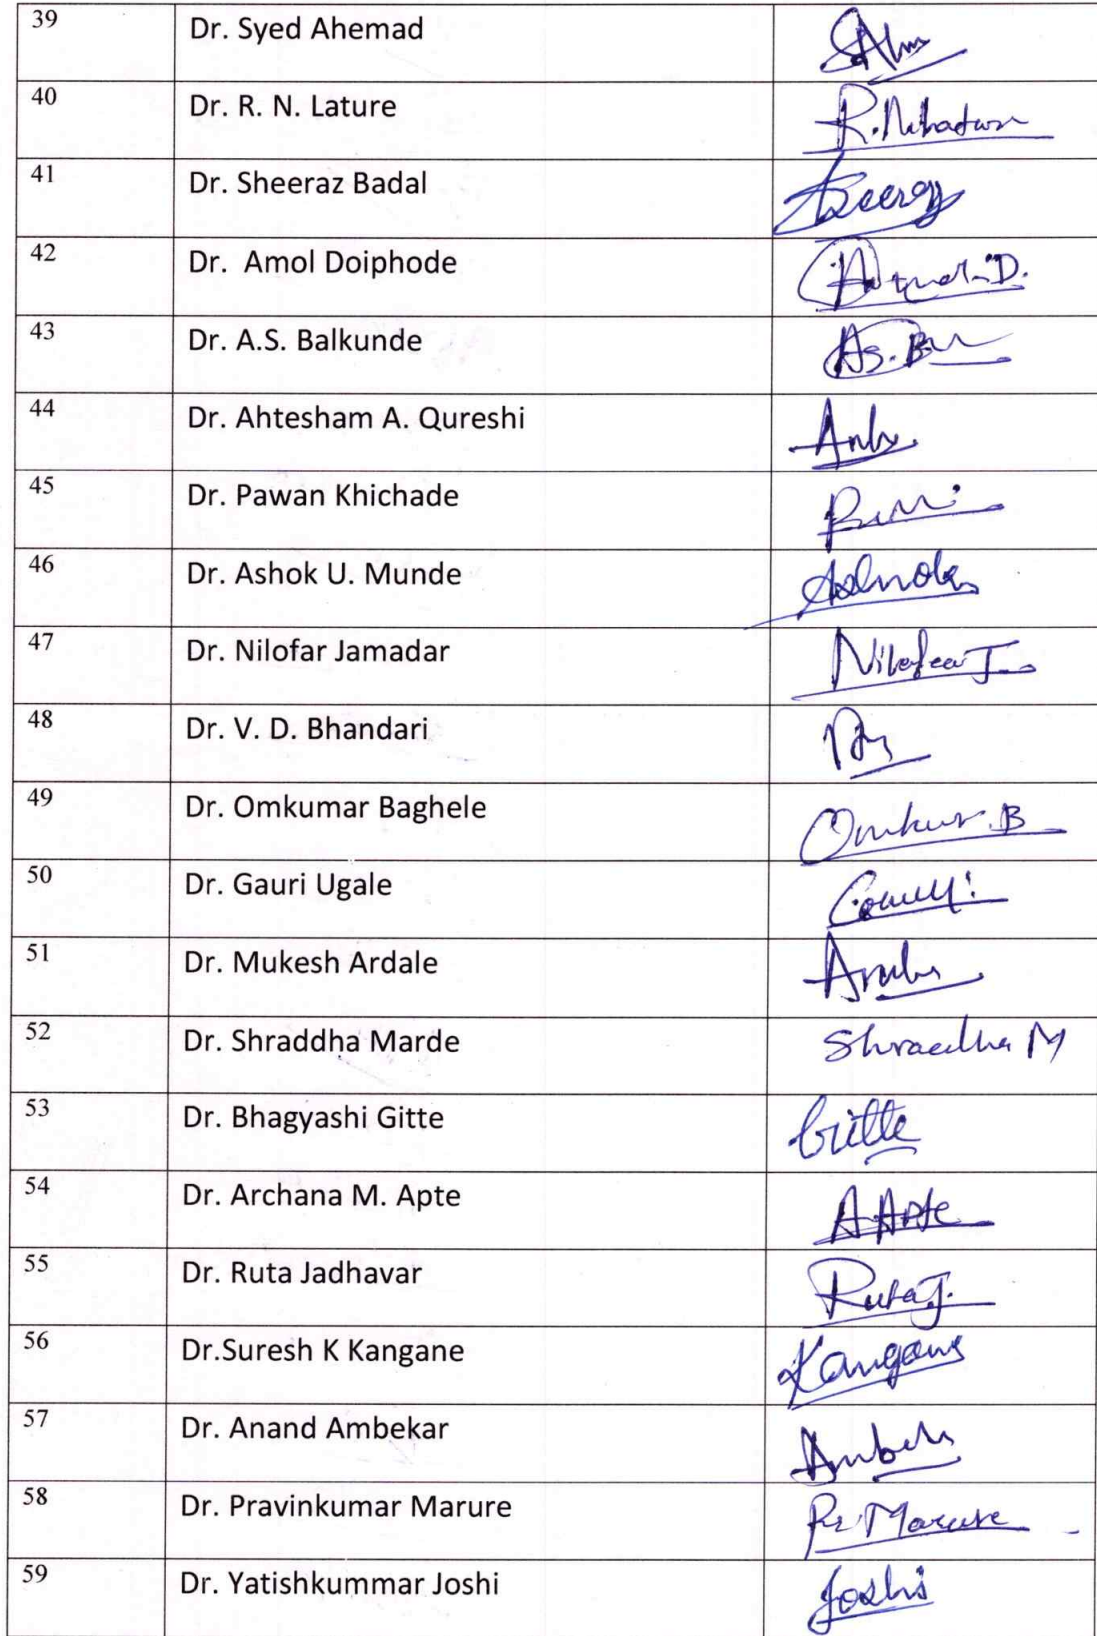 39 Dr. Syed Ahemad
40 Dr. R. N. Lature
41 Dr. Sheeraz Badal
42 Dr. Amol Doiphode
43 Dr. A.S. Balkunde As.
44 Dr. Ahtesham A. Qureshi
45 Dr. Pawan Khichade
46 Dr. Ashok U. Munde Ashok
47 Dr. Nilofar Jamadar Nilofar J.
48 Dr. V. D. Bhandari
49 Dr. Omkumar Baghele Omkur.B
50 Dr. Gauri Ugale
51 Dr. Mukesh Ardale
52 Dr. Shraddha Marde Shraddha M
53 Dr. Bhagyashi Gitte Gitte
54 Dr. Archana M. Apte A.Apte
55 Dr. Ruta Jadhavar Ruta J.
56 Dr.Suresh K Kangane Kangane
57 Dr. Anand Ambekar
58 Dr. Pravinkumar Marure Pr. Marure
59 Dr. Yatishkummar Joshi Joshi